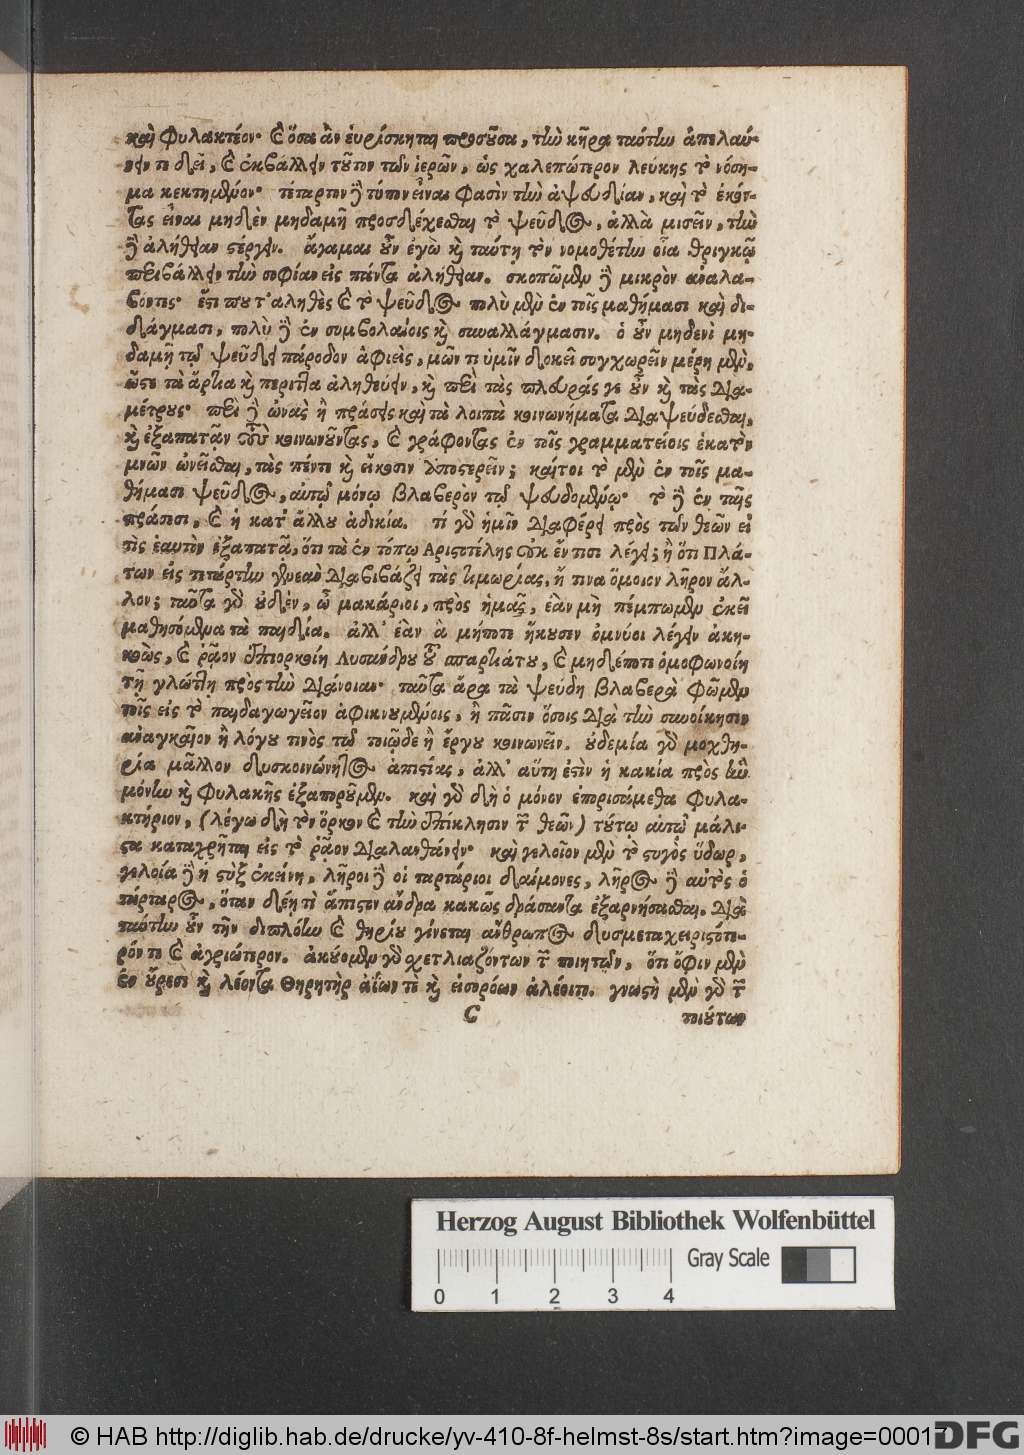 καὶ φυλακτέον· καὶ ὅσα ἂν εὑρίσκηται προσοῦσα, τὴν κῆρα ταύτην ἀπελαύ-
νειν τε δεῖ, καὶ ἐκβάλλειν τοῦτον τῶν ἱερῶν, ὡς χαλεπώτερον λεύκης τὸ νόση-
μα κεκτημένον· τέταρτον δὲ τύπον εἶναι φασὶν τὴν ἀψευδίαν, καὶ τὸ ἑκόν-
τας εἶναι μηδὲν μηδαμῆ προσδέχεσθαι τὸ ψεῦδος, ἀλλὰ μισεῖν, τὴν
δὲ ἀλήθειαν στέργειν. ἄγαμαι οὖν ἐγὼ καὶ ταύτῃ τὸν νομοθέτην οἷα θριγκῷ
περιβάλλειν τὴν σοφίαν εἰς πάντα ἀλήθειαν. σκοπῶμεν δὲ μικρὸν ἀναλα-
βόντες· ἔστι που τ' ἀληθὲς καὶ τὸ ψεῦδος πολὺ μὲν ἐν τοῖς μαθήμασι καὶ δι-
δάγμασι, πολὺ δὲ ἐν συμβολαίοις καὶ συναλλάγμασιν. ὁ οὖν μηδενὶ μη-
δαμῇ τῷ ψεύδει πάροδον ἀφιεὶς, μῶν τι ὑμῖν δοκεῖ συγχωρεῖν μέρη μὲν,
ὥστε τὰ ἄρτια καὶ περιττα ἀληθεύειν, καὶ περὶ τὰς πλευράς γε οὖν καὶ τὰς δια-
μέτρους· περὶ δὲ ὠνὰς ἢ πράσεις καὶ τὰ λοιπὰ κοινωνήματα διαψεύδεσθαι,
καὶ ἐξαπατᾷν τοὺς κοινωνοῦντας, καὶ γράφοντας ἐν τοῖς γραμματείοις ἑκατὸν
μνῶν ὠνεῖσθαι, τὰς πέντε καὶ εἴκοσιν ἀποστερεῖν; καίτοι τὸ μὲν ἐν τοῖς μα-
θήμασι ψεῦδος, αὐτῷ μόνῳ βλαβερὸν τῷ ψευδομένῳ· τὸ δὲ ἐν ταῖς
πράσεσι, καὶ ἡ κατ' ἄλλου ἀδικία. τί γὰρ ἡμῖν διαφέρει πρὸς τῶν θεῶν εἴ
τις ἑαυτὸν ἐξαπατᾷ, ὅτι τὰ ἐν τόπῳ Ἀριστοτέλης οὐκ ἔν τισι λέγει; ἢ ὅτι Πλά-
των εἰς τετάρτην γενεὰν διαβιβάζει τὰς τιμωρίας, ἤ τινα ὅμοιον λῆρον ἄλ-
λον; ταῦτα γὰρ οὐδὲν, ὦ μακάριοι, πρὸς ἡμᾶς, ἐὰν μὴ πέμπωμεν ἐκεῖ
μαθησόμενα τὰ παιδία. ἀλλ' ἐὰν ἃ μήποτε ἤκουσεν ὀμνύοι λέγειν ἀκη-
κοὼς, καὶ ῥᾷον ἐπιορκοίη Λυσάνδρου τοῦ σπαρτιάτου, καὶ μηδέποτε ὁμοφωνοίη
τῇ γλώττῃ πρὸς τὴν διάνοιαν· ταῦτα ἄρα τὰ ψεύδη βλαβερὰ φῶμεν
τοῖς εἰς τὸ παιδαγωγεῖον ἀφικνουμένοις, ἢ πᾶσιν ὅσοις διὰ τὴν συνοίκησιν
ἀναγκαῖον ἢ λόγου τινὸς τῷ τοιῷδε ἢ ἔργου κοινωνεῖν. οὐδεμία γὰρ μοχθη-
ρία μᾶλλον δυσκοινώνητος ἀπιστίας, ἀλλ' αὕτη ἐστὶν ἡ κακία πρὸς ἣν
μόνην καὶ φυλακῆς ἐξαποροῦμεν. καὶ γὰρ δὴ ὃ μόνον ἐπορισάμεθα φυλα-
κτήριον, (λέγω δὴ τὸν ὅρκον καὶ τὴν ἐπίκλησιν τῶν θεῶν) τούτῳ αὐτῷ μάλι-
στα καταχρῆται εἰς τὸ ῥᾷον διαλανθάνειν· καὶ γελοῖον μὲν τὸ στυγὸς ὕδωρ,
γελοία δὲ ἡ στὺξ ἐκείνη, λῆροι δὲ οἱ ταρτάριοι δαίμονες, λῆρος δὲ αὐτὸς ὁ
τάρταρος, ὅταν δέῃ τὶ ἄπιστον ἄνδρα κακῶς δράσαντα ἐξαρνήσασθαι. διὰ
ταύτην οὖν τὴν διπλόην καὶ θηρίου γίνεται ἄνθρωπος δυσμεταχειριστότε-
ρόν τε καὶ ἀγριώτερον. ἀκούομεν γὰρ σχετλιαζόντων τῶν ποιητῶν, ὅτι ὄφιν μὲν
ἐν οὔρεσι καὶ λέοντα θηρητὴρ ἀΐων τὲ καὶ εἰσορόων ἀλέοιτο. γνωστὴ μὲν γὰρ τῶν
C τοιούτων
Herzog August Bibliothek Wolfenbüttel
Gray Scale
0 1 2 3 4
© HAB http://diglib.hab.de/drucke/yv-410-8f-helmst-8s/start.htm?image=00017
DFG